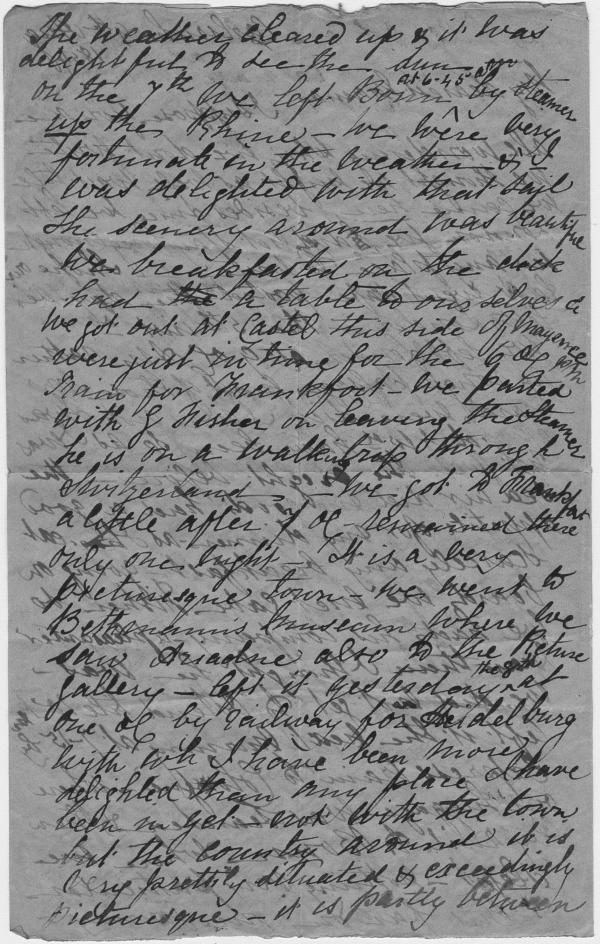 The weather cleared up & it was
delightful to see the sun
on the 7th We left Bonn at 6-45 am by Steamer
up the Rhine - we wêre very
fortunate in the weather & I
was delighted with that sail
the scenery around was beautiful
We breakfasted on the deck
had the a table to ourselves &
we got out at Castel this side of Mayence
were just in time for the 6 oC
Train for Frankfort - We parted
with G Fisher on leaving the Steamer
he is on a walking trip through
Switzerland. - We got to Frankfort
a little after 7 oC - remained there
only one night - It is a very
picturesque town - we went to
Bethmann's museum where we
saw Ariadne also to the Picture
gallery - left it yesterday the 8th at
one oC by railway for Heidelburg
with wh I have been more
delighted than any place I have
been in yet - not with the town,
but the country around it is
very prettily situated & exceedingly
picturesque - it is partly between